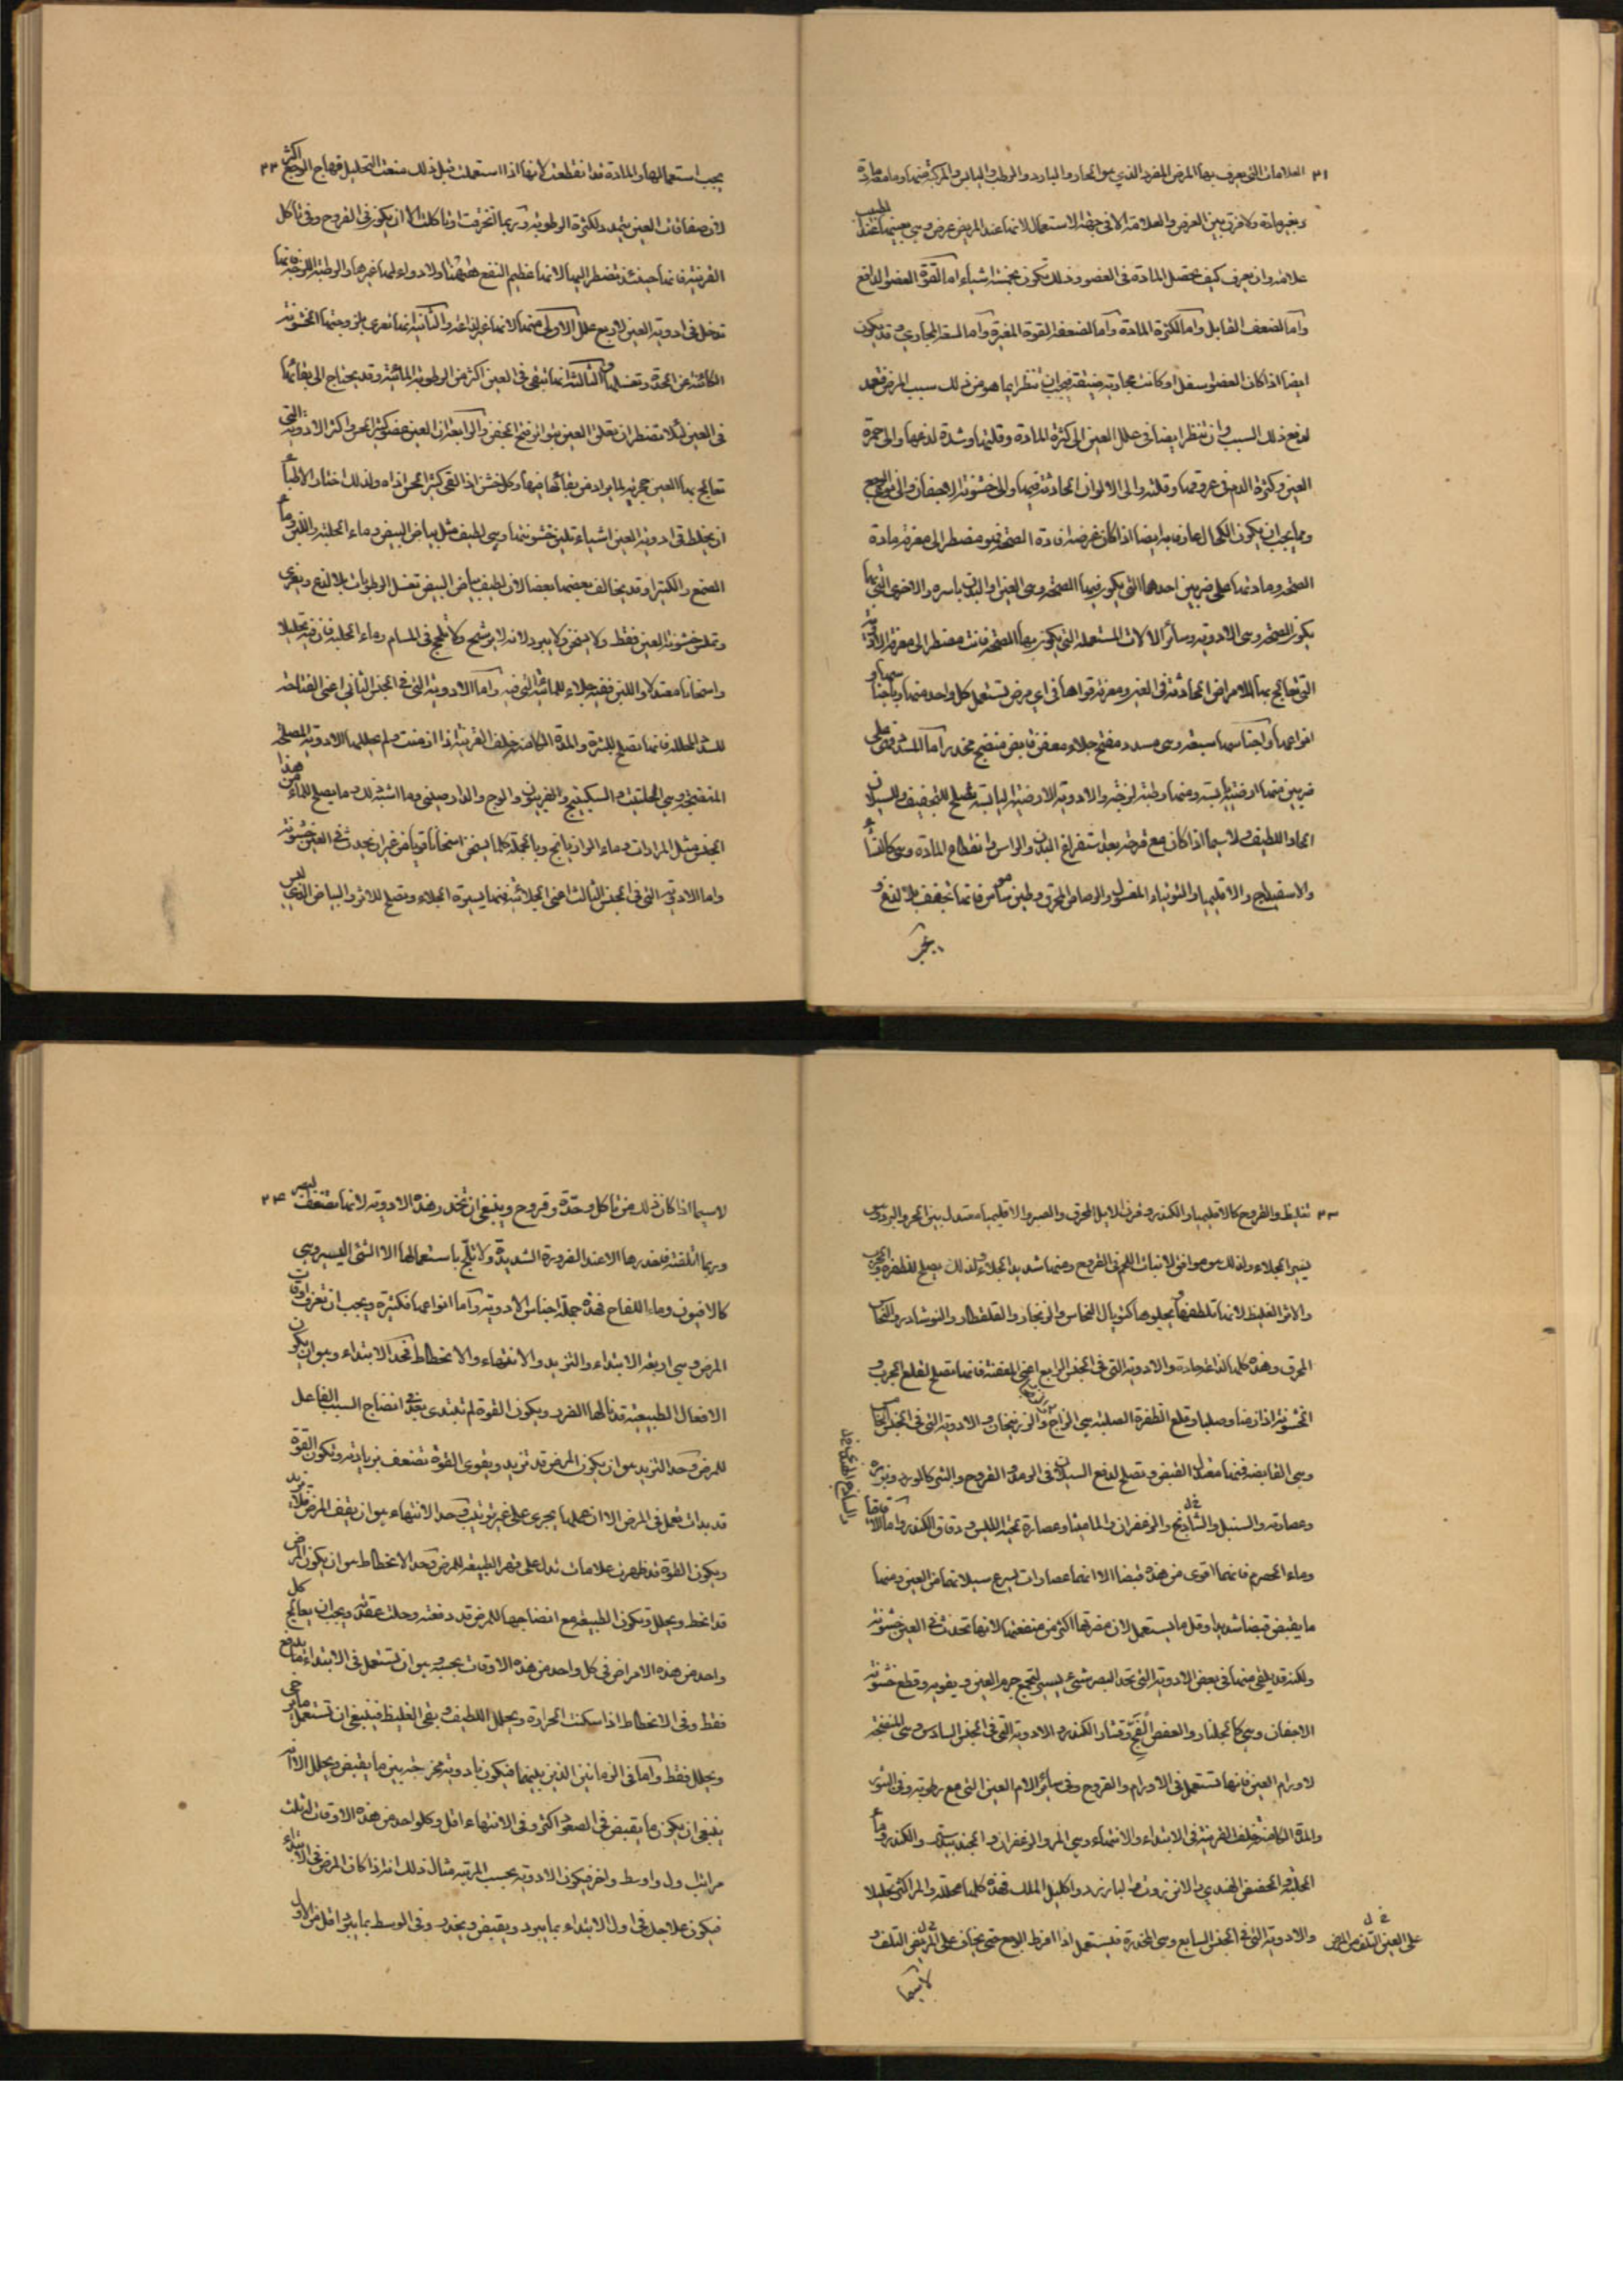 ٣١ العلامات التى يعرف بها المرض المفرد الذي هو الحار والبارد والرطب واليابس والمركبة منهما وما معه مادة
وبغير مادة ولا فرق بين العرض والعلامة الا فى جهة الاستعمال لانها عند المريض عرض وهي بعينها عند الطبيب
علامة وان يعرف كيف تحصل المادة فى العضو وذلك يكون بخمسة اشياء اما لقوة العضو الدافع
واما لضعف القابل واما لكثرة المادة واما لضعف القوة المغيرة واما لسعة المجاري وقد يكون
ايضا اذا كان العضو اسفل او كانت مجاريه ضيقة فيجب ان تنظر ايما هو من ذلك سبب المرض فتعمد
لدفع ذلك السبب وان تنظر ايضا فى علل العين الى كثرة المادة وقلتها وشدة لدغها والى حمرة
العين وكثرة الدم فى عروقها وقلته والى الالوان الحادثة فيها والى خشونة الاجفان والى الوجع
ومما يجب ان يكون الكحال عارفا به ايضا اذا كان غرضه افادة الصحة فهو مضطر الى معرفة مادة
الصحة ومادتها على ضربين احدهما التى يكون فيها الصحة وهى العين والبدن باسره والاخرى التى بها
يكون الصحة وهى الادوية وسائر الالات المستعملة التى يكون بها الصحة فانت مضطر الى معرفة الادوية
التى تعالج بها الامراض الحادثة فى العين ومعرفة قواها فى اي مرض تستعمل كل واحد منها وباجناسها و
انواعها واجناسها سبعة وهى مسدد مفتح جلاء معفن قابض منضج مخدر اما المسدد فهى على
ضربين فمنها ارضية يابسة ومنها رطبة لزجة والادوية الارضية اليابسة تصلح للتجفيف والسيلان
الحاد اللطيف ولاسيما اذا كان مع قرحة بعد استفراغ البدن والراس وانقطاع المادة وهى كالنشاء
والاسفيداج والاقليميا والتوتياء المغسول والرصاص المحرق وطين شاموس فانها تجفف بلا لذع و
يجب
يجب استعمالها والمادة قد انقطعت لانها اذا استعملت قبل ذلك منعت التحليل فهاج الوجع اكثر ٣٢
لان صفاقات العين يتمدد لكثرة الرطوبة وربما انخرقت او تاكلت الا ان يكون فى القروح وفى تاكل
القرنية فانها حينئذ تضطر اليها لانها عظيم النفع هيهنا ولا دواء لها غيرها والرطبة اللزجة فانها
تدخل فى ادوية العين لاربع علل الاولى منها لانها غير لذاعة والثانية انها تعرى بلزوجتها الخشونة
الكائنة عن الحدة وتغسلها و الثالثة انها تبقى فى العين اكثر من الرطوبة المائية وقد يحتاج الى بقائها
فى العين لئلا تضطر ان تقلق العين بتواتر فتح الجفن والرابعة ان العين عضو كثير الحس واكثر الادوية التى
تعالج بها العين حجرية لما يراد من بقائها فيها وكل خشن اذا لقى كثير الحس اذاه ولذلك اختار الاطباء
ان يخلط فى ادوية العين اشياء تلين خشونتها وهي لطيف مثل بياض البيض وماء الحلبة واللبن وماء
الصمغ والكثيرا وقد يخالف بعضها بعضا لان لطيف بياض البيض تغسل الرطوبات بلا لذع ويغرى
وتملس خشونة العين فقط ولا يسخن ولا يبرد لانه لا يرشح ولا تلحج فى المسام وماء الحلبة فان فيه تحليلا
واسخانا معتدلا واللبن ففيه جلاء للمائية التى فيه واما الادوية التى فى الجنس الثانى اعنى الفتاحة
للسدد المحللة فانها تصلح للبثرة والمدة الكامنة خلف القرنية اذا ازمنت ولم يحللها الادوية المصلحة
المنضجة وهي الحلتيت والسكبينج والفربيون والوج والدارصينى وما اشبه ذلك وما يصلح للماء من هذا
الجنس مثل المرارات وماء الرازيانج وبالجملة كلما يسخن اسخانا قويا من غير ان يحدث فى العين خشونة
واما الادوية التى فى الجنس الثالث اعنى الجلائية فمنها يسيرة الجلاء وتصلح للاثر والبياض الذي ليس
٣٣ تغليظ والقروح كالاقليميا والكندر وقرن الايل المحرق والصبر والاقليميا معتدل بين الحر والبرد وهى
يسير الجلاء ولذلك هو موافق لانبات اللحم فى القروح ومنها شديد الجلاء ولذلك يصلح للظفرة والجرب
والاثر الغليظ لانها تلطفها ويجلوها كتوبال النحاس والزنجار والقلقطار والنوشادر والنحاس
المحرق وهذه كلها لذاعة حادة والادوية التى فى الجنس الرابع اعنى المعفنة فانها تصلح لقلع الجرب و
الخشونة اذا ازمنا وصلبا وقلع الظفرة الصلبة هى الزاج والزرنيخان والادوية التى فى الجنس الخامس
وهى القابضة فمنها معتدل القبض وتصلح لدفع السيلان فى الرمد والقروح والبثر كالورد وبزره
وعصارته والسنبل والشاذنج والزعفران والماميثا وعصارة لحية التيس ودقاق الكندر واما الاقاقيا
وماء الحصرم فانهما اقوى من هذه قبضا الا انهما عصارات يسرع سيلانها من العين ومنها
ما يقبض قبضا شديدا وقل ما يستعمل لان مضرتها اكثر من منفعتها لانها تحدث فى العين خشونة
ولكنه قد يلقى منها فى بعض الادوية التى تحد البصر شئ يسير لتجمع جرم العين ويقويه وقطع خشونة
الاجفان وهي كالجلنار والعفص الفج وقشار الكندر والادوية التى فى الجنس السادس وهى المنضجة
لاورام العين فانها تستعمل فى الاورام والقروح وفى سائر الام العين التى مع رطوبة وفى البثور
والمدة الكامنة خلف القرنية فى الابتداء والانتهاء وهي المر والزعفران والجندبيدستر والكندر وماء
الحلبة والحضض الهندي والانزروت والبارزد واكليل الملك فهذه كلها محللة والمر اكثر تحليلا
والادوية التى فى الجنس السابع وهى المخدرة فيستعمل اذا افرط الوجع حتى يخاف على المريض التلف و
على العين التلف من المرض
لاسيما
لاسيما اذا كان ذلك من تاكل وحدة وقروح وينبغى ان تحذر هذه الادوية لانها تضعف البصر ٣٤
وربما اتلفته فلتحذرها الا عند الضرورة الشديدة ولا تلح باستعمالها الا الشئ اليسير وهي
كالافيون وماء اللفاح فهذه جملة اجناس الادوية واما انواعها فكثيرة ويجب ان تعرف اوقات
المرض وهي اربعة الابتداء والتزيد والانتهاء والانحطاط فحد الابتداء وهو ان يكون
الافعال الطبيعية قد نالها الضرر ويكون القوة لم تبتدى بعد فى انضاج السبب الفاعل
للمرض وحد التزيد هو ان يكون المرض قد تزيد ويقوى القوة تضعف بزيادته وتكون القوة
قد بدات تعمل فى المرض الا ان عملها يجرى على غير ترتيب وحد الانتهاء هو ان يقف المرض فلا يزيد
ويكون القوة قد ظهرت علامات تدل على قهر الطبيعة للمرض وحد الانحطاط هو ان يكون المرض
قد انحط ويحلل وتكون الطبيعة مع انضاجها للمرض قد دفعته وحلت عقدته ويجب ان يعالج كل
واحد من هذه الامراض فى كل واحد من هذه الاوقات بحسبه وهو ان تستعمل فى الابتداء ما يدفع
فقط وفى الانحطاط اذا سكنت الحرارة ويحلل اللطيف وبقى الغليظ فينبغى ان تستعمل ما يرخى
ويحلل فقط واما فى الزمانين الذين بينهما فيكون بادوية ممزجة بين ما يقبض ويحلل الا انه
ينبغى ان يكون ما يقبض فى الصعود اكثر وفى الانتهاء اقل وكل واحد من هذه الاوقات له ثلث
مراتب اول واوسط واخر فيكون الادوية بحسب المرتبة مثال ذلك انه اذا كان المرض فى الابتداء
فيكون علاجك فى اول الابتداء بما يبرد ويقبض ويخدر وفى الوسط بما يبرد اقل من الاول